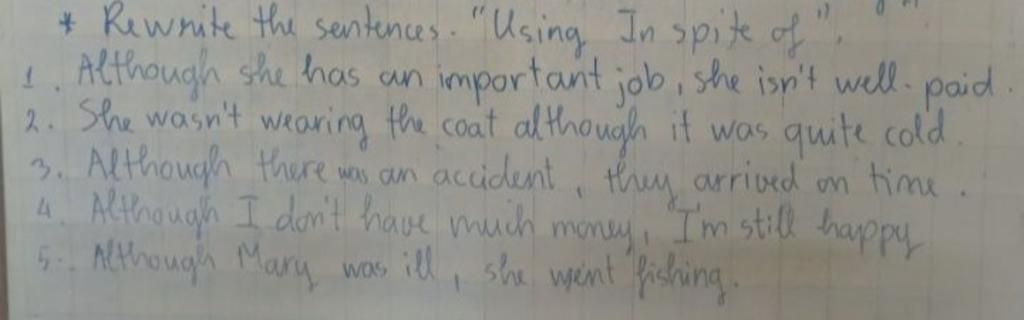 * Rewrite the sentences. "Using In spite of".
1. Although she has an important job, she isn't well-paid.
2. She wasn't wearing the coat although it was quite cold.
3. Although there was an accident, they arrived on time.
4. Although I don't have much money, I'm still happy
5. Although Mary was ill, she went fishing.